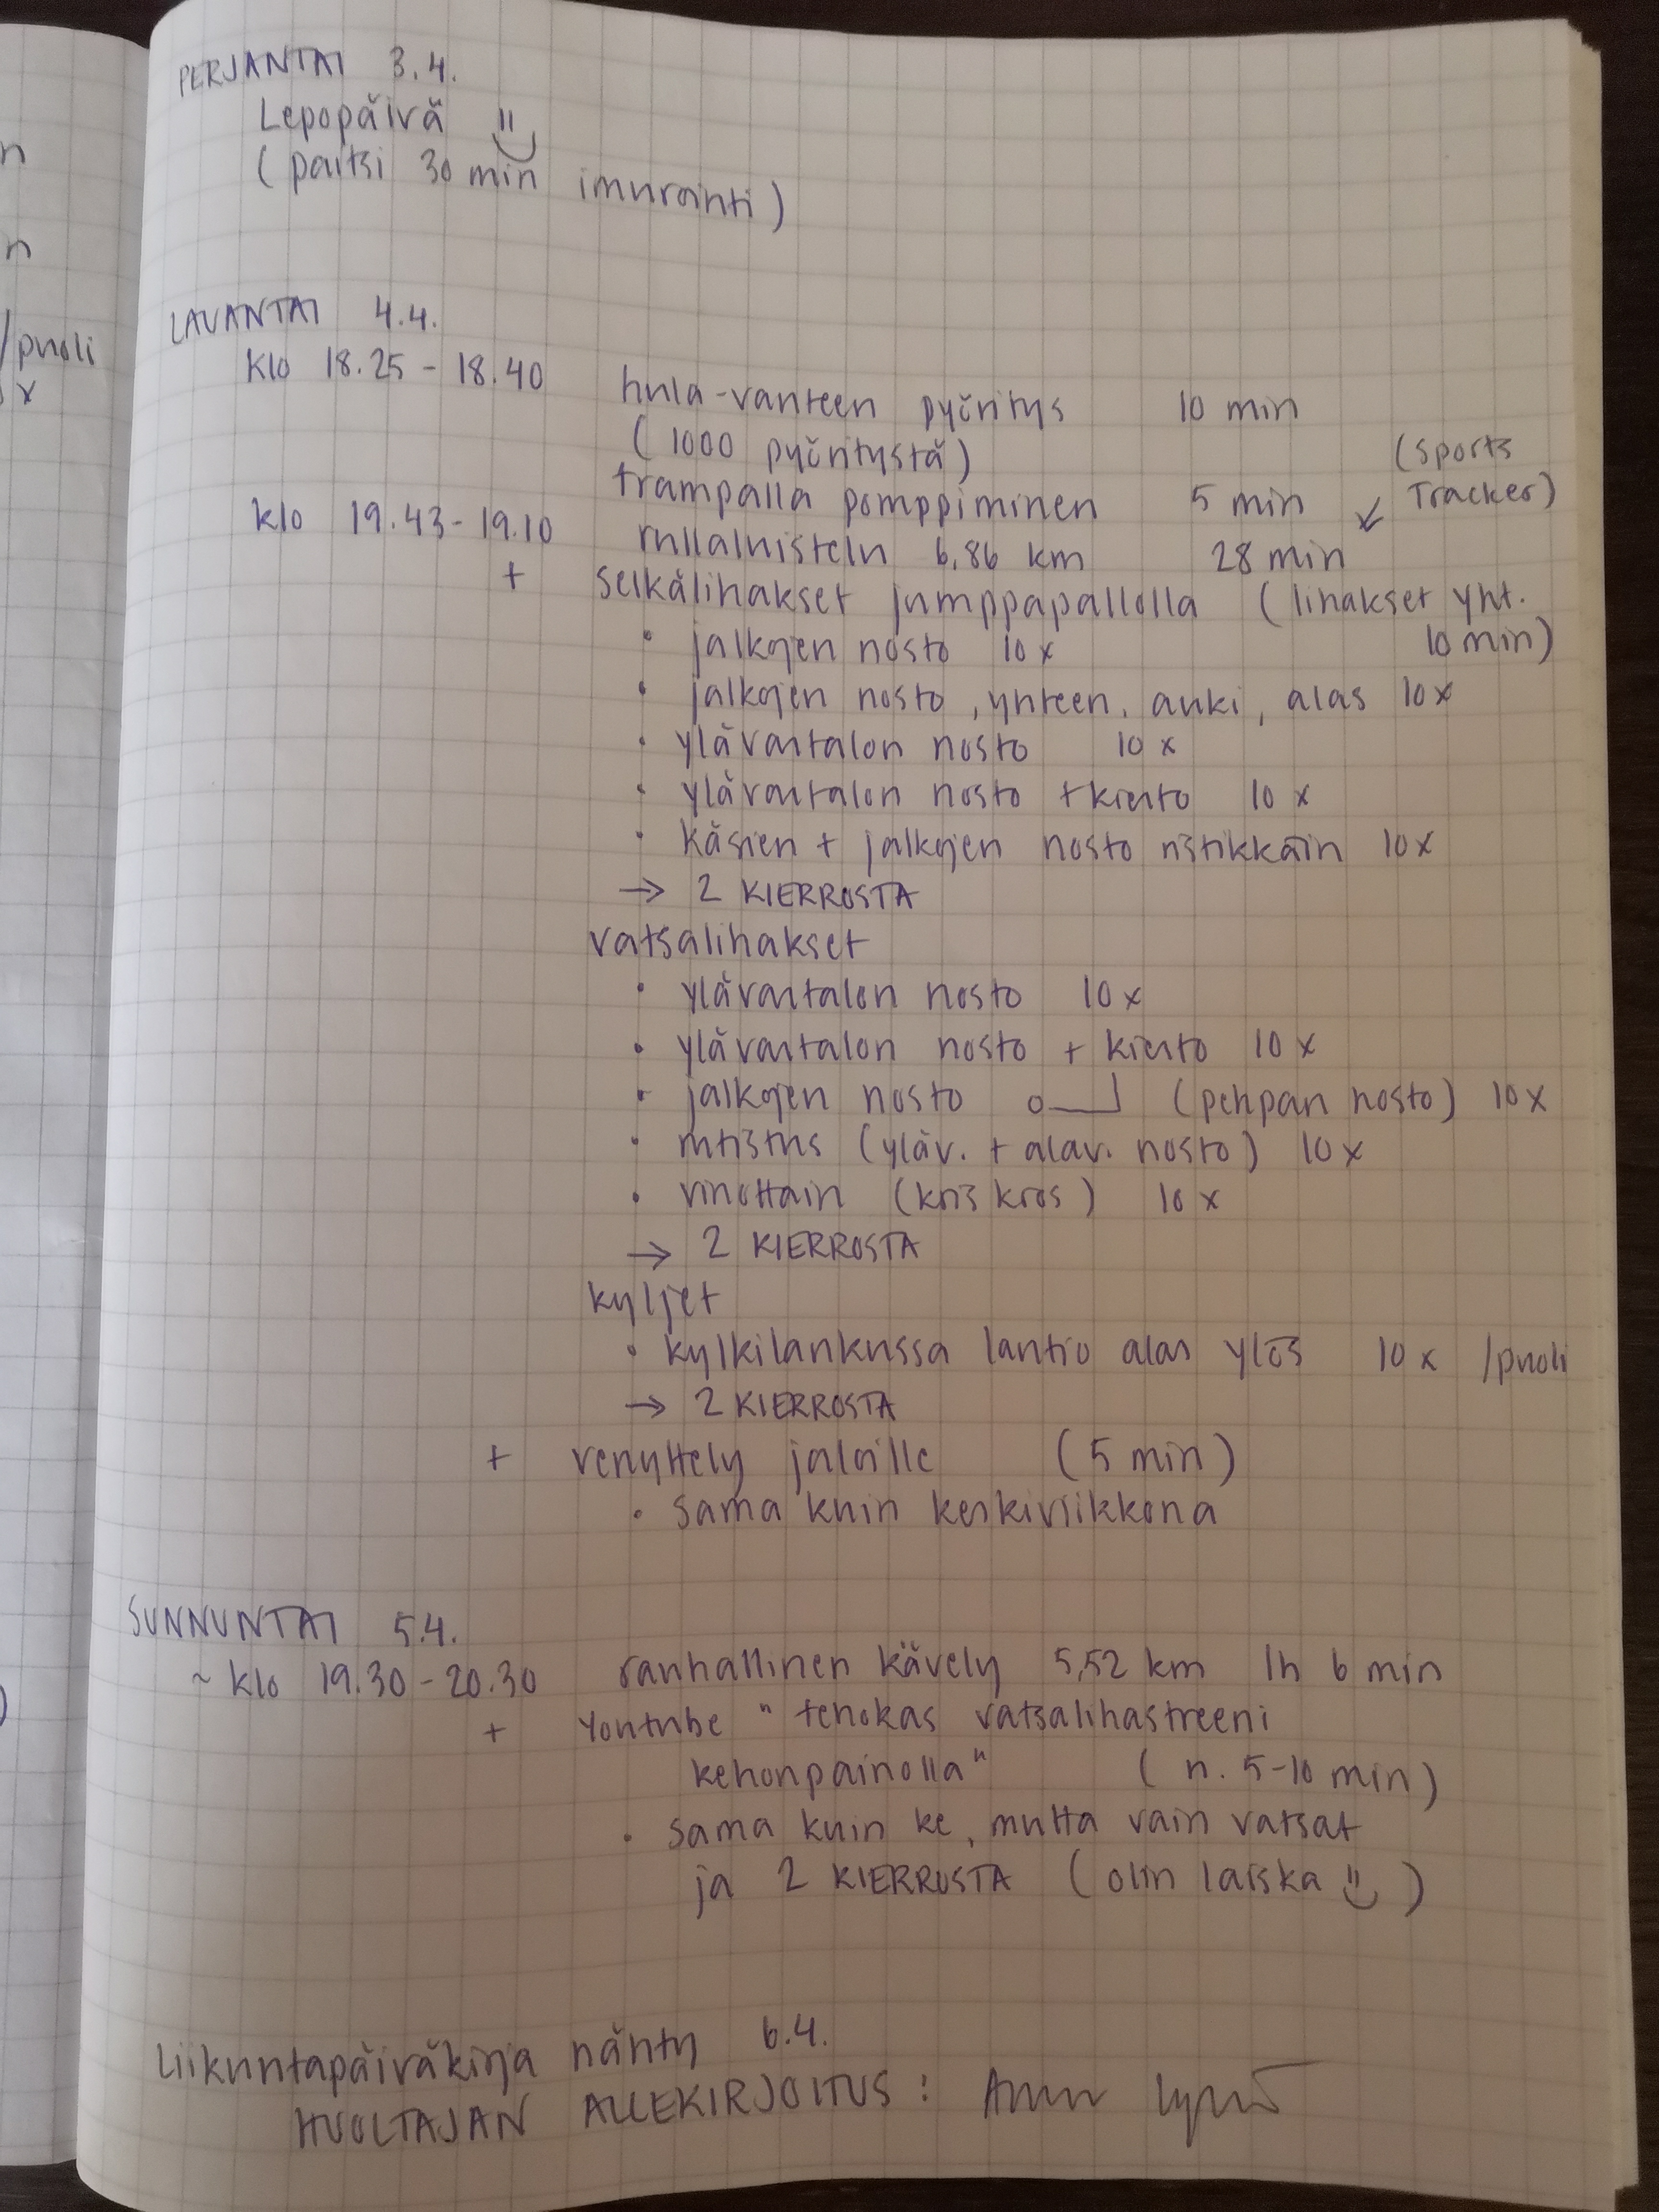 n
n
/puoli
x
PERJANTAI 3.4.
Lepopäivä
(paitsi 30 min imurointi)
LAUANTAI 4.4.
klo 18.25 - 18.40 hula-vanteen pyöritys 10 min
(1000 pyöritystä)
trampalla pomppiminen 5 min
(Sports Tracker)
klo 19.43 - 19.10 rullaluistelu 6,86 km 28 min
+ selkälihakset jumppapallolla (lihakset yht. 10 min)
• jalkojen nosto 10x
• jalkojen nosto, yhteen, auki, alas 10x
• ylävartalon nosto 10x
• ylävartalon nosto + kierto 10x
• käsien + jalkojen nosto ristikkäin 10x
→ 2 KIERROSTA
vatsalihakset
• ylävartalon nosto 10x
• ylävartalon nosto + kierto 10x
• jalkojen nosto (pehpan nosto) 10x
• rutistus (yläv. + alav. nosto) 10x
• vinottain (kris kros) 10x
→ 2 KIERROSTA
kyljet
• kylkilankussa lantio alas ylös 10x /puoli
→ 2 KIERROSTA
+ venyttely jaloille (5 min)
• sama kuin keskiviikkona
SUNNUNTAI 5.4.
~ klo 19.30 - 20.30 rauhallinen kävely 5,52 km 1h 6 min
+ Youtube "tehokas vatsalihastreeni
kehonpainolla" (n. 5-10 min)
• sama kuin ke, mutta vain vatsat
ja 2 KIERROSTA (olin laiska)
Liikuntapäiväkirja nähty 6.4.
HUOLTAJAN ALLEKIRJOITUS: